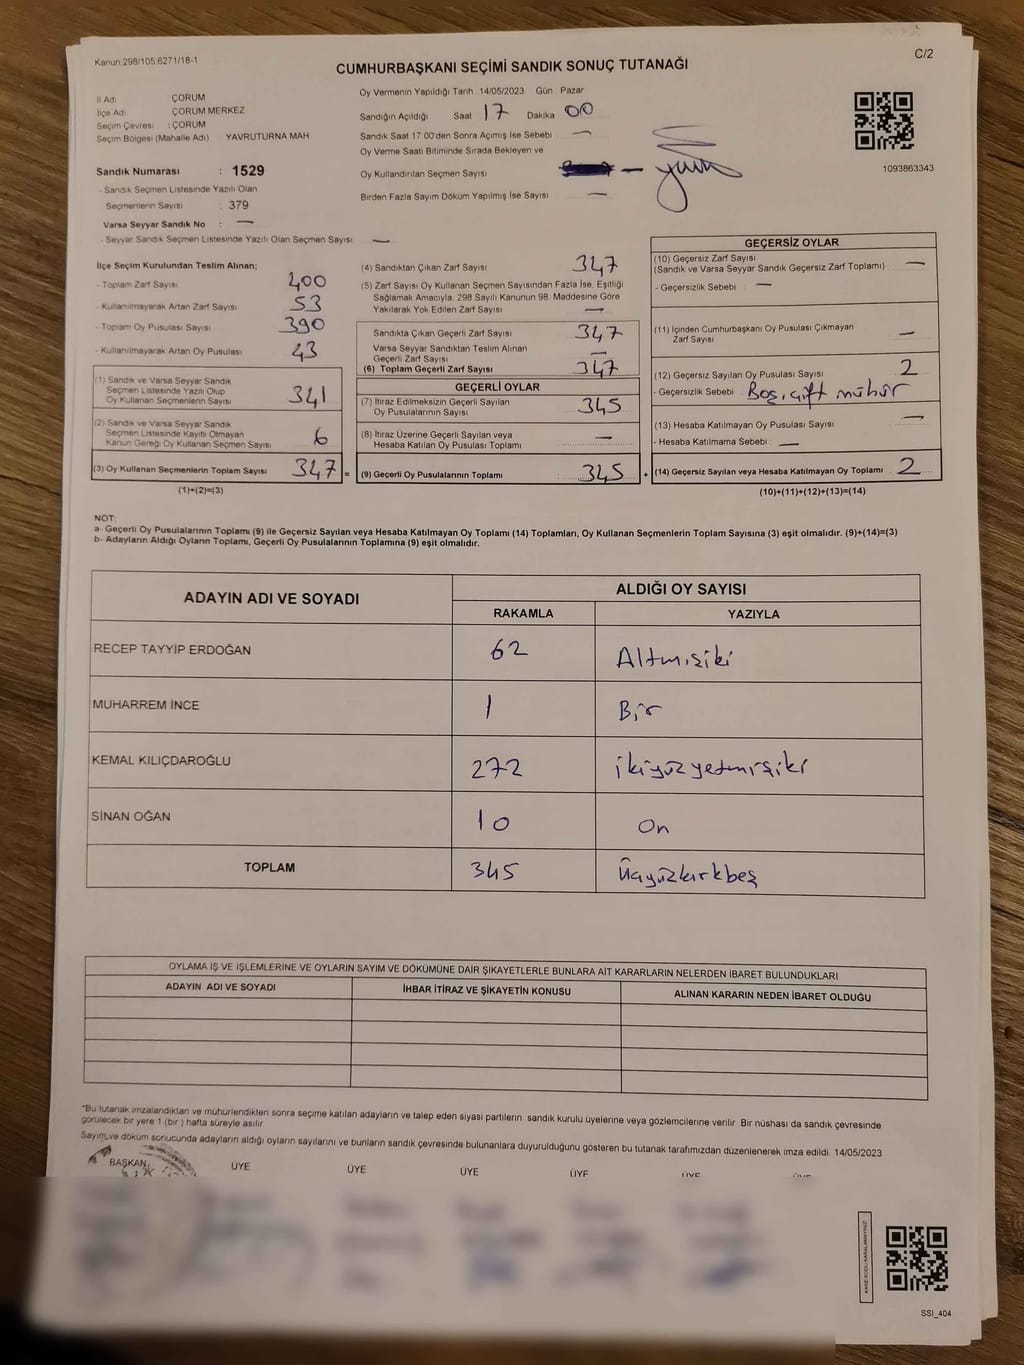 Kanun:298/105.6271/18-1
C/2
CUMHURBAŞKANI SEÇİMİ SANDIK SONUÇ TUTANAĞI
İl Adı ÇORUM
İlçe Adı ÇORUM MERKEZ
Seçim Çevresi : ÇORUM
Seçim Bölgesi (Mahalle Adı) YAVRUTURNA MAH
Sandık Numarası : 1529
- Sandık Seçmen Listesinde Yazılı Olan
Seçmenlerin Sayısı : 379
Varsa Seyyar Sandık No : —
- Seyyar Sandık Seçmen Listesinde Yazılı Olan Seçmen Sayısı —
Oy Vermenin Yapıldığı Tarih 14/05/2023 Gün : Pazar
Sandığın Açıldığı Saat 17 Dakika 00
Sandık Saat 17:00'den Sonra Açımış İse Sebebi —
Oy Verme Saati Bitiminde Sırada Bekleyen ve
Oy Kullandırılan Seçmen Sayısı —
Birden Fazla Sayım Döküm Yapılmış İse Sayısı —
1093863343
İlçe Seçim Kurulundan Teslim Alınan;
- Toplam Zarf Sayısı 400
- Kullanılmayarak Artan Zarf Sayısı 53
- Toplam Oy Pusulası Sayısı 390
- Kullanılmayarak Artan Oy Pusulası 43
(1) Sandık ve Varsa Seyyar Sandık
Seçmen Listesinde Yazılı Olup
Oy Kullanan Seçmenlerin Sayısı 341
(2) Sandık ve Varsa Seyyar Sandık
Seçmen Listesinde Kayıtlı Olmayan
Kanun Gereği Oy Kullanan Seçmen Sayısı 6
(3) Oy Kullanan Seçmenlerin Toplam Sayısı 347 =
(1)+(2)=(3)
(4) Sandıktan Çıkan Zarf Sayısı 347
(5) Zarf Sayısı Oy Kullanan Seçmen Sayısından Fazla İse, Eşitliği
Sağlamak Amacıyla, 298 Sayılı Kanunun 98. Maddesine Göre
Yakılarak Yok Edilen Zarf Sayısı —
Sandıkta Çıkan Geçerli Zarf Sayısı 347
Varsa Seyyar Sandıktan Teslim Alınan
Geçerli Zarf Sayısı —
(6) Toplam Geçerli Zarf Sayısı 347
GEÇERLİ OYLAR
(7) İtiraz Edilmeksizin Geçerli Sayılan
Oy Pusulalarının Sayısı 345
(8) İtiraz Üzerine Geçerli Sayılan veya
Hesaba Katılan Oy Pusulası Toplamı —
(9) Geçerli Oy Pusulalarının Toplamı : 345 +
GEÇERSİZ OYLAR
(10) Geçersiz Zarf Sayısı
(Sandık ve Varsa Seyyar Sandık Geçersiz Zarf Toplamı) —
- Geçersizlik Sebebi : —
(11) İçinden Cumhurbaşkanı Oy Pusulası Çıkmayan
Zarf Sayısı —
(12) Geçersiz Sayılan Oy Pusulası Sayısı 2
- Geçersizlik Sebebi : Boş, çift mühür
(13) Hesaba Katılmayan Oy Pusulası Sayısı —
- Hesaba Katılmama Sebebi : —
(14) Geçersiz Sayılan veya Hesaba Katılmayan Oy Toplamı : 2
(10)+(11)+(12)+(13)=(14)
NOT:
a- Geçerli Oy Pusulalarının Toplamı (9) ile Geçersiz Sayılan veya Hesaba Katılmayan Oy Toplamı (14) Toplamları, Oy Kullanan Seçmenlerin Toplam Sayısına (3) eşit olmalıdır. (9)+(14)=(3)
b- Adayların Aldığı Oyların Toplamı, Geçerli Oy Pusulalarının Toplamına (9) eşit olmalıdır.
ADAYIN ADI VE SOYADI ALDIĞI OY SAYISI
RAKAMLA YAZIYLA
RECEP TAYYİP ERDOĞAN 62 Altmışiki
MUHARREM İNCE 1 Bir
KEMAL KILIÇDAROĞLU 272 ikiyüzyetmişiki
SİNAN OĞAN 10 On
TOPLAM 345 Üçyüzkırkbeş
OYLAMA İŞ VE İŞLEMLERİNE VE OYLARIN SAYIM VE DÖKÜMÜNE DAİR ŞİKAYETLERLE BUNLARA AİT KARARLARIN NELERDEN İBARET BULUNDUKLARI
ADAYIN ADI VE SOYADI İHBAR İTİRAZ VE ŞİKAYETİN KONUSU ALINAN KARARIN NEDEN İBARET OLDUĞU
*Bu tutanak imzalandıktan ve mühürlendikten sonra seçime katılan adayların ve talep eden siyasi partilerin sandık kurulu üyelerine veya gözlemcilerine verilir. Bir nüshası da sandık çevresinde
görülecek bir yere 1 (bir) hafta süreyle asılır
Sayım ve döküm sonucunda adayların aldığı oyların sayılarını ve bunların sandık çevresinde bulunanlara duyurulduğunu gösteren bu tutanak tarafımızdan düzenlenerek imza edildi. 14/05/2023
BAŞKAN ÜYE ÜYE ÜYE ÜYE ÜYE ÜYE
KARE KODU KARALAMAYINIZ!
SSI_404